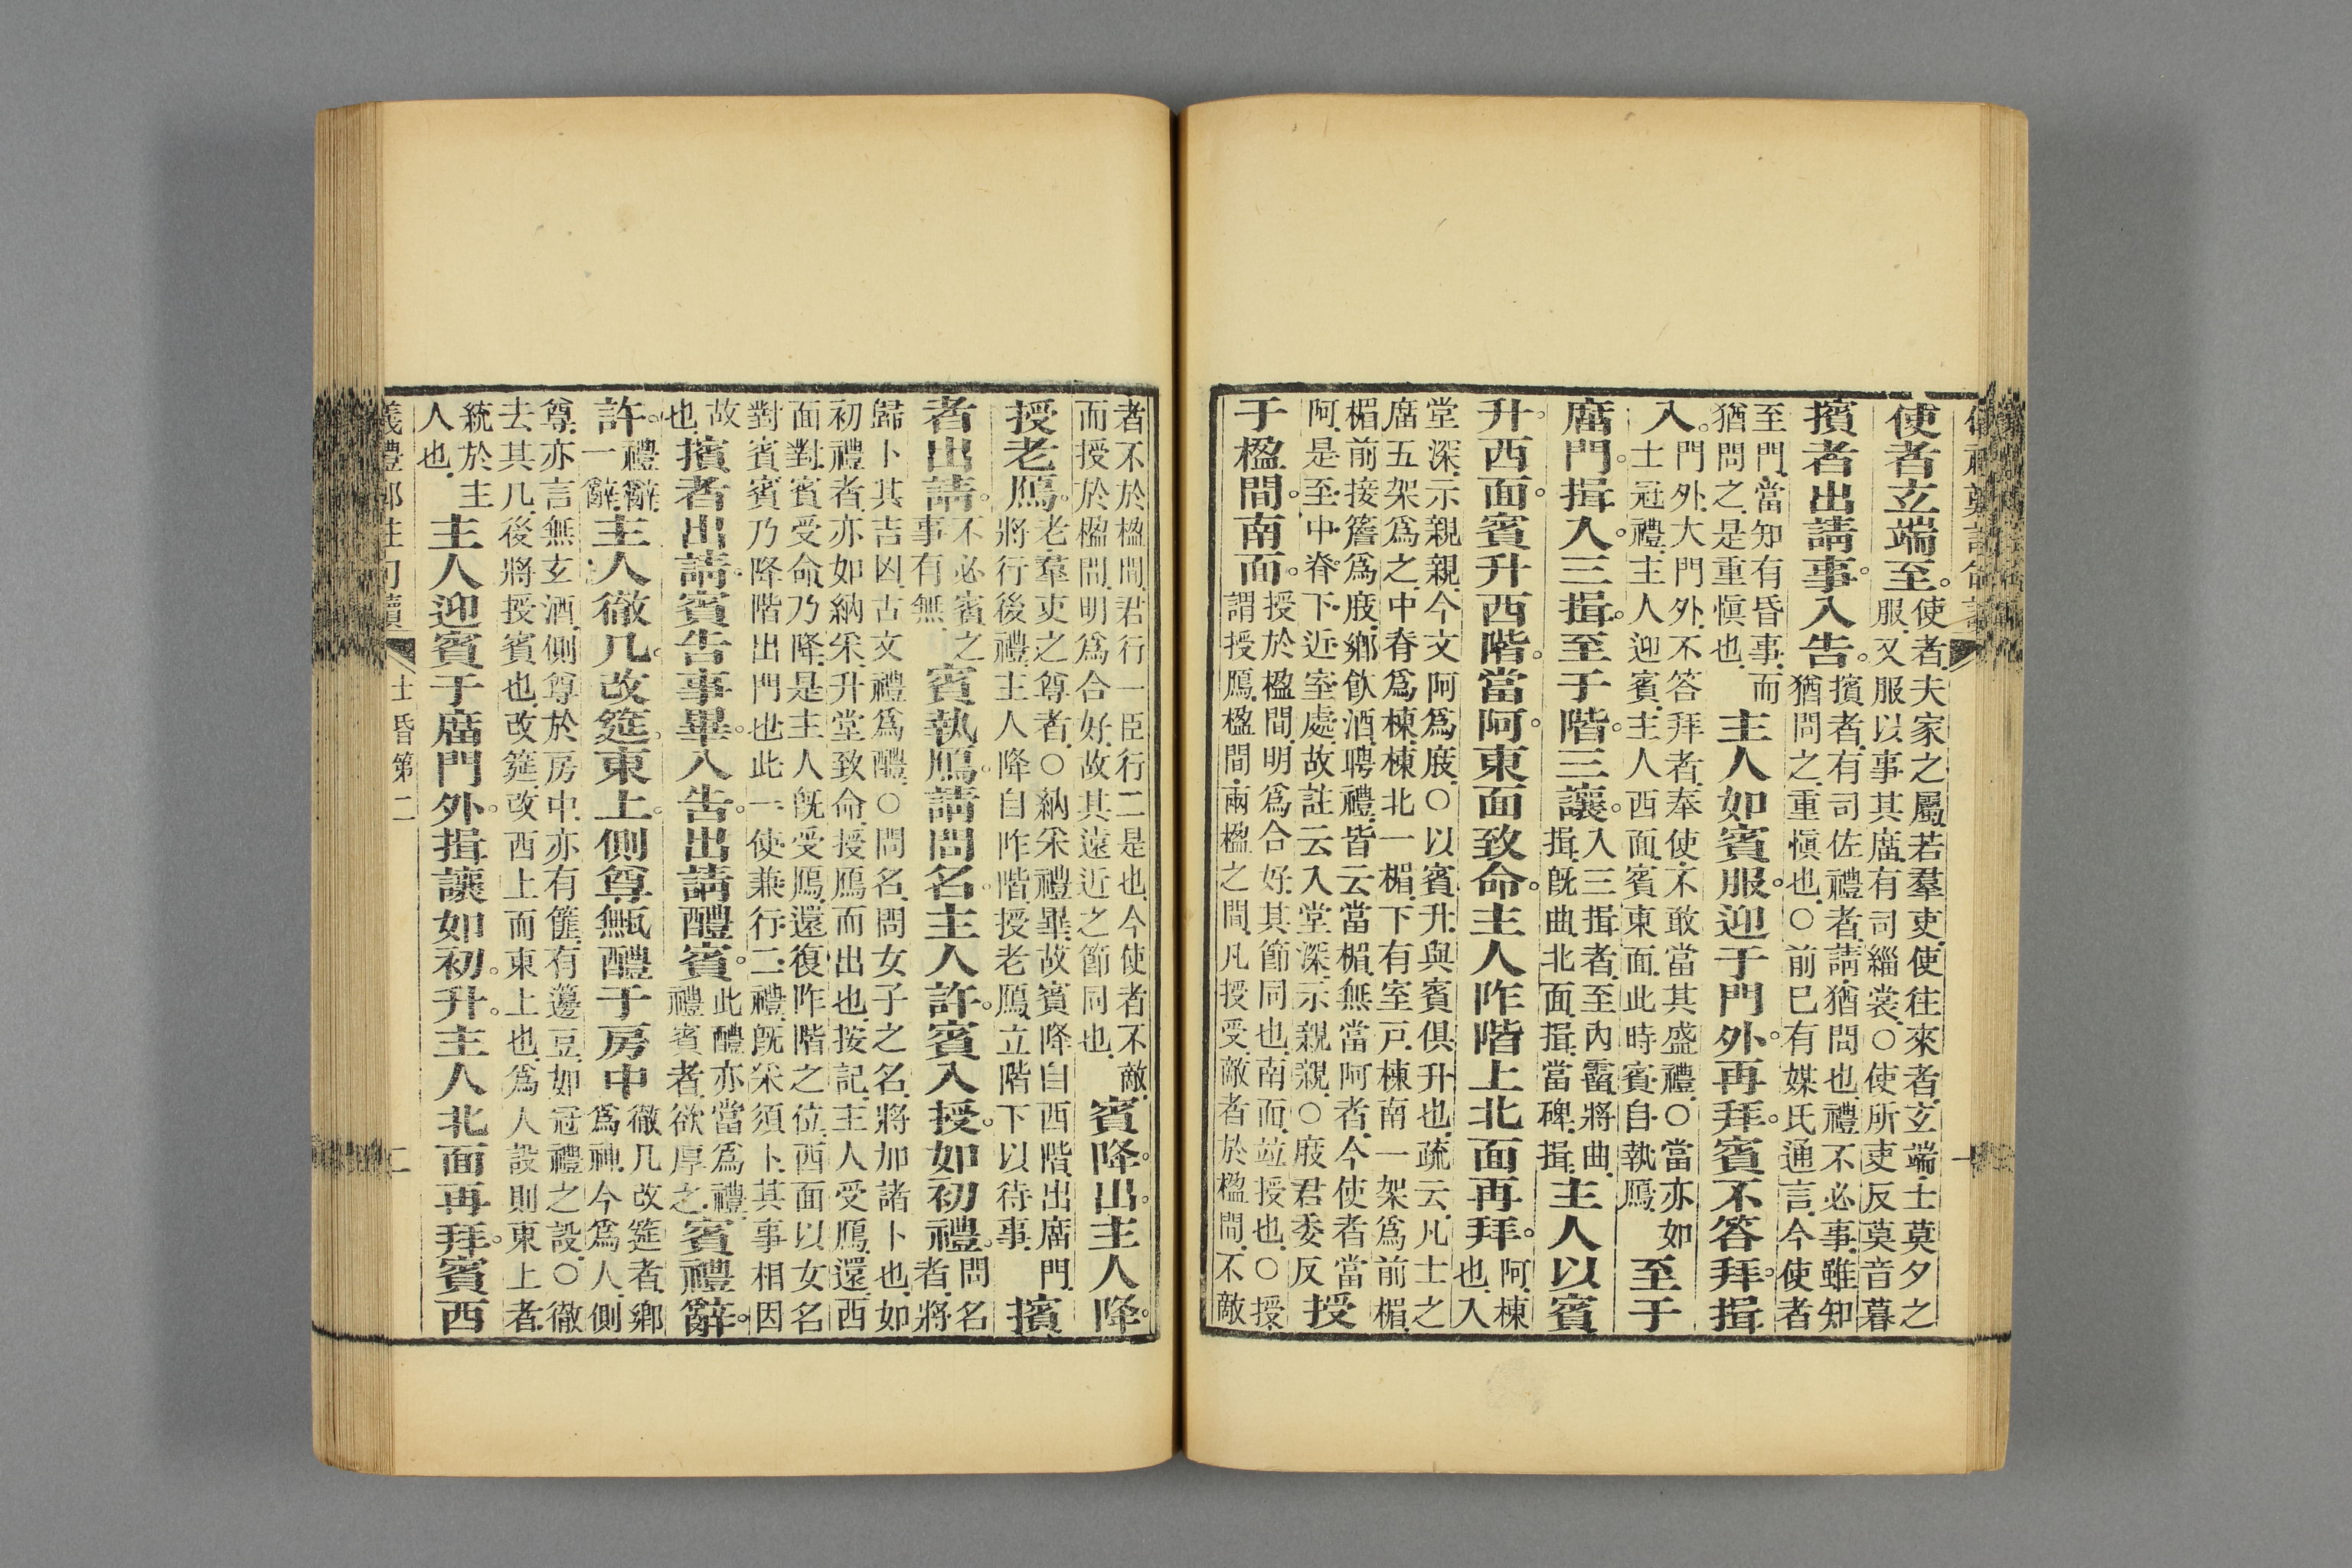 使者玄端至。使者、夫家之屬、若羣吏使往來者、玄端、士莫夕之
服、又服以事其廟、有司緇裳、○使所吏反莫音暮
擯者出請事。入告。擯者、有司佐禮者、請猶問也、禮不必事、雖知
猶問之、重愼也、○前已有媒氏通言、今使者
至門、當知有昏事、而
猶問之、是重愼也、主人如賓服。迎于門外。再拜。賓不答拜。揖
入。門外、大門外、不答拜者、奉使不敢當其盛禮、○當亦如
士冠禮、主人迎賓、主人西面、賓東面、此時賓自執鴈、至于
廟門。揖入。三揖。至于階。三讓。入三揖者、至內霤、將曲
揖、旣曲、北面揖、當碑、揖、主人以賓
升。西面。賓升西階。當阿。東面致命。主人阼階上北面再拜。阿、棟
也、入
堂深、示親親、今文阿爲庪、○以賓升、與賓俱升也、疏云、凡士之
廟五架爲之、中脊爲棟、棟北一楣、下有室戶、棟南一架爲前楣、
楣前接簷爲庪、鄉飮酒、聘禮、皆云當楣、無當阿者、今使者當
阿、是至中脊下、近室處、故註云入堂深、示親親、○庪君委反授
于楹間。南面。授於楹間、明爲合好、其節同也、南面、竝授也、○授、
謂授鴈、楹間、兩楹之間、凡授受、敵者於楹間、不敵
者不於楹間、君行一臣行二是也、今使者不敵、
而授於楹間、明爲合好、故其遠近之節同也、賓降。出。主人降。
授老鴈。老、羣吏之尊者、○納采禮畢、故賓降自西階、出廟門、
將行後禮、主人降自阼階、授老鴈、立階下以待事、擯
者出請。不必賓之
事有無、賓執鴈。請問名。主人許。賓入授。如初禮。問名
者、將
歸卜其吉凶、古文禮爲醴、○問名、問女子之名、將加諸卜也、如
初禮者、亦如納采、升堂致命、授鴈而出也、按記、主人受鴈、還、西
面對、賓受命、乃降、是主人旣受鴈、還復阼階之位、西面以女名
對賓、賓乃降階出門也、此一使兼行二禮、旣采須卜、其事相因
故
也、擯者出請。賓告事畢。入告。出請醴賓。此醴亦當爲禮、
禮賓者、欲厚之、賓禮辭。
許。禮辭、
一辭、主人徹几。改筵。東上。側尊甒醴于房中。徹几改筵者、鄉
爲神、今爲人、側
尊、亦言無玄酒、側尊於房中、亦有篚、有籩豆、如冠禮之設、○徹
去其几、後將授賓也、改筵、改西上而東上也、爲人設則東上者、
統於主
人也、主人迎賓于廟門外。揖讓如初。升。主人北面再拜。賓西
儀禮鄭註句讀 士昏第二 二